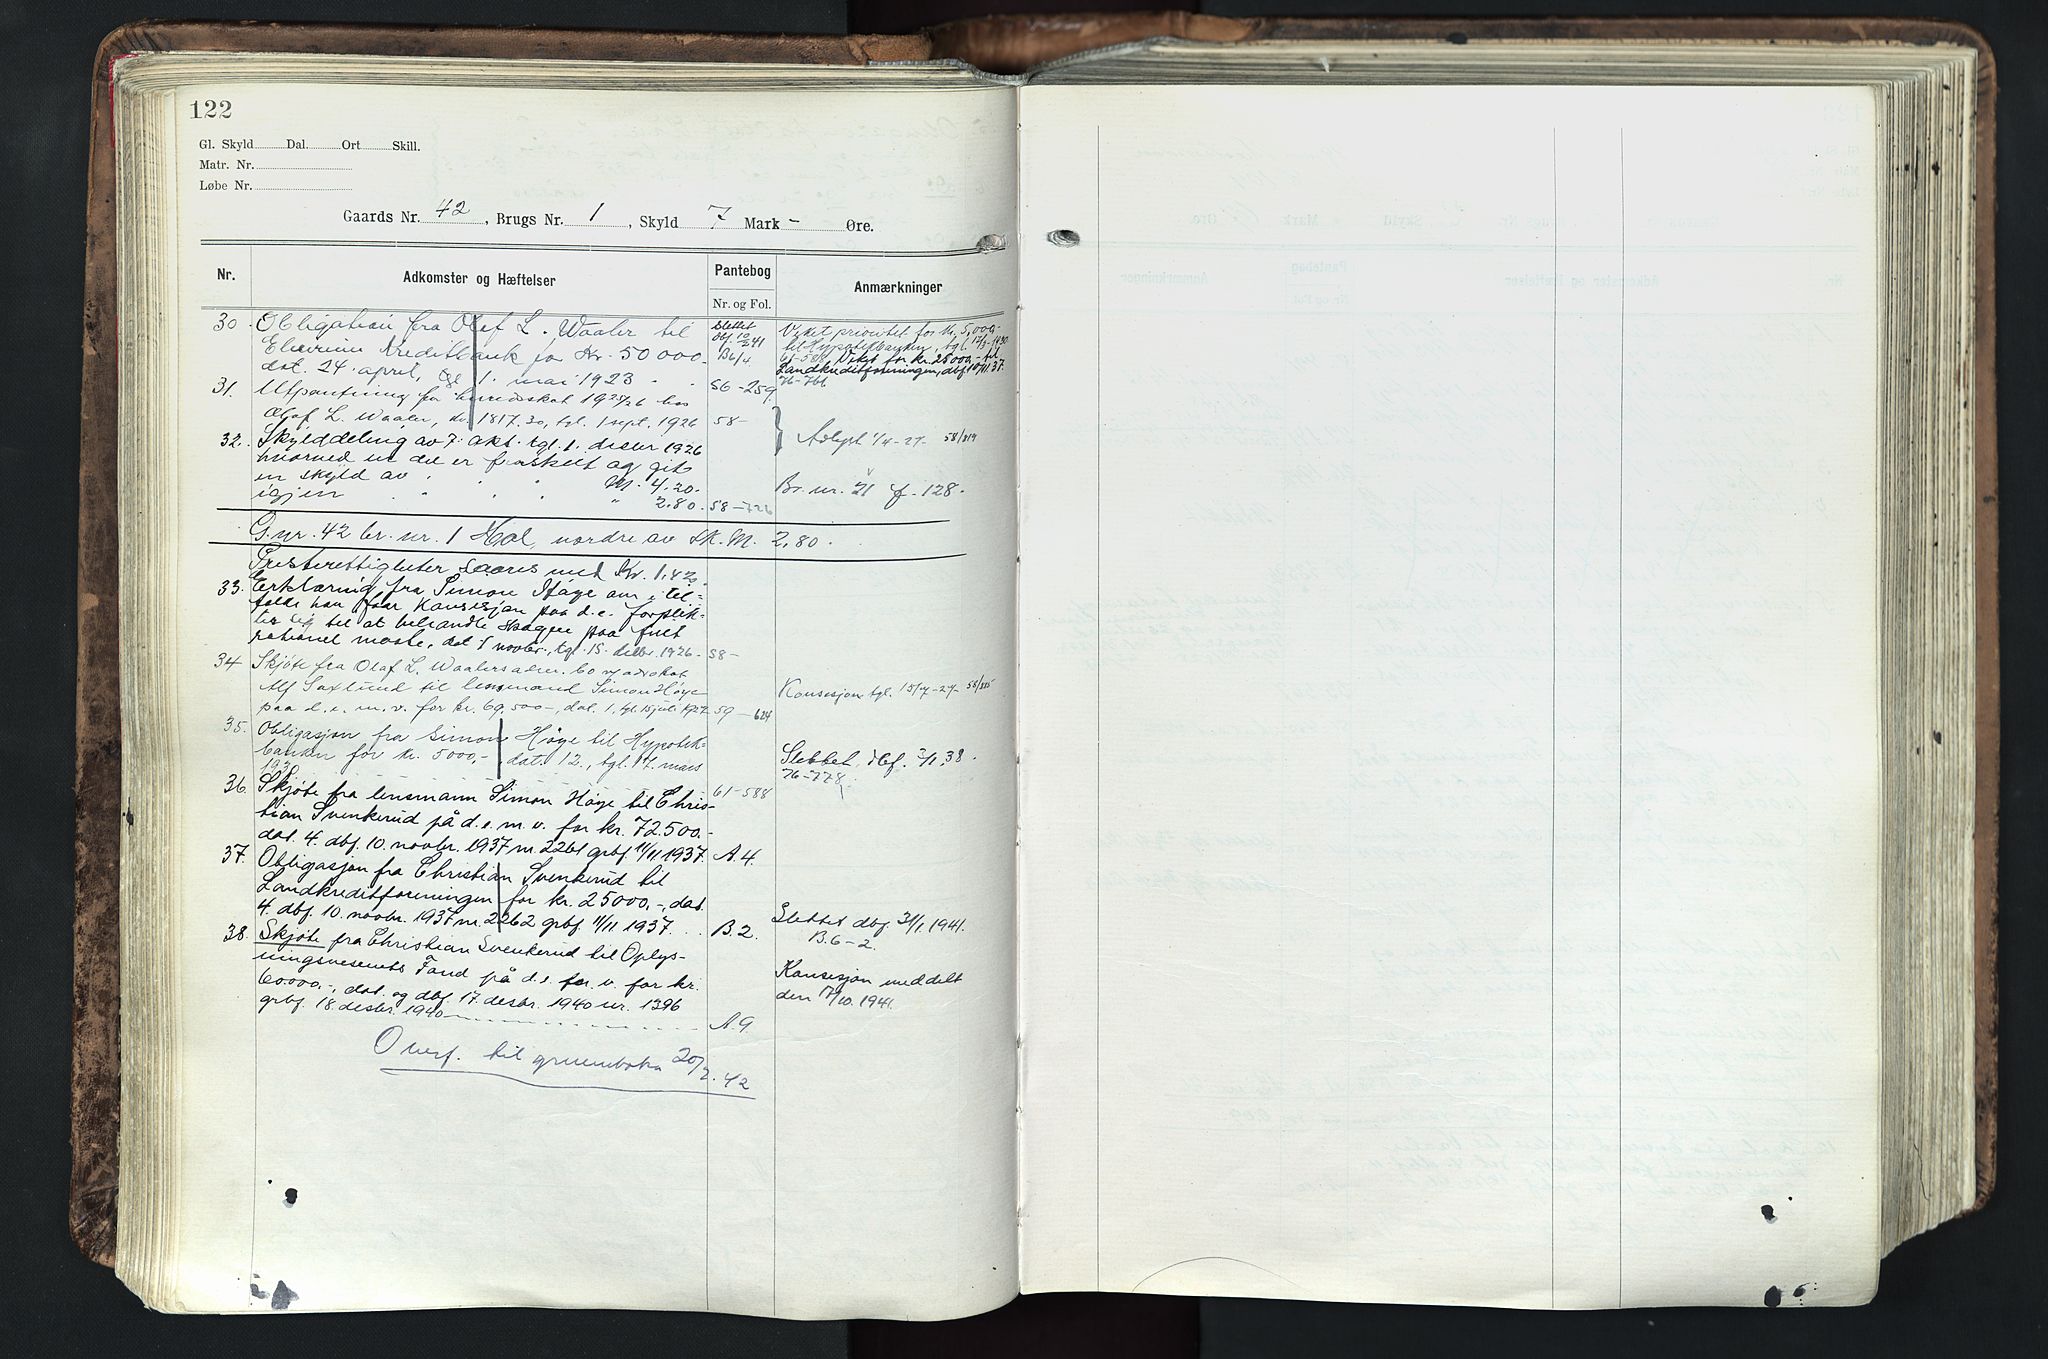 122
Gl. Skyld Dal. Ort Skill.
Matr. Nr.
Løbe Nr.
Gaards Nr. 42, Brugs Nr. 1, Skyld 7 Mark - Øre.
Nr. Adkomster og Hæftelser Pantebog Anmærkninger
Nr. og Fol.
30. Obligation fra Olaf L. Waaler til
Elverum Kreditbank for Kr. 50000.-
dat. 24. april, tgl 1. mai 1923
Slettet
dbf. 10/2 41
B6/4
56-259
Veket prioritet for kr. 5,000.-
til Hypotekbanken, tgl. 17/3-1930
61-588. Vekt for kr. 25000.- til
Landkreditforeningen, dbf. 10/11.37.
76-766
31. Utpantning for herredsskat 1925/26 hos
Olaf L. Waaler, kr. 1817.30, tgl. 1 sept. 1926 58-
Avlyst 1/4-27- 58/819
32. Skylddeling av 7. okt. tgl. 1. desbr 1926
hvorved en del er fraskilt og git
en skyld av M. 4.20.
igjen " 2.80. 58-726
Br. nr. 21 f. 128.
G.nr. 42 br. nr. 1 Hol nordre av Sk. M. 2.80.
Presterettigheter svares med Kr. 1.42
33. Erklæring fra Simon Høye om i til-
fælde han faar Konsesjon paa d.e. forplik-
ter sig til at behandle skogen paa fuld
rationel maate, dat 1 novbr., tgl. 15. desbr. 1926- 58-
34 Skjøte fra Olaf L. Waalers adm. bo v/ advokat
Alf Saxlund til lensmand Simon Høye
paa d.e. m.v. for kr. 69,500-, dat. 1, tgl. 15 juli 1927 59-624
Konsesjon tgl. 15/7-27-
35. Obligasjon fra Simon Høye til Hypotek-
banken for kr. 5000,-, dat. 12., tgl. 17. mars
1930
61-588
Slettet, dbf. 7/1.38.
76-778
36. Skjøte fra lensmann Simon Høye til Chris-
tian Svenkerud på d.e. m.v. for kr. 72.500.-
dat. 4. dbf. 10. novbr. 1937 nr. 2261 grbf. 11/11 1937. A.4
37. Obligasjon fra Christian Svenkerud til
Landkreditforeningen for kr. 25000,-, dat.
4. dbf. 10. novbr. 1937 nr. 2262 grbf 11/11 1937. B.2.
Slettet dbf. 31/1. 1941.
B.6-2.
38. Skjøte fra Christian Svenkerud til Oplys-
ningsvesenets Fond på d.e. m. v. for kr.
60.000.-, dat. og dbf. 17. desbr. 1940 nr. 1396
grbf. 18. desbr. 1940 A.9.
Konsesjon meddelt
den 17/10. 1941.
Overf. til grunnboka 20/7.42